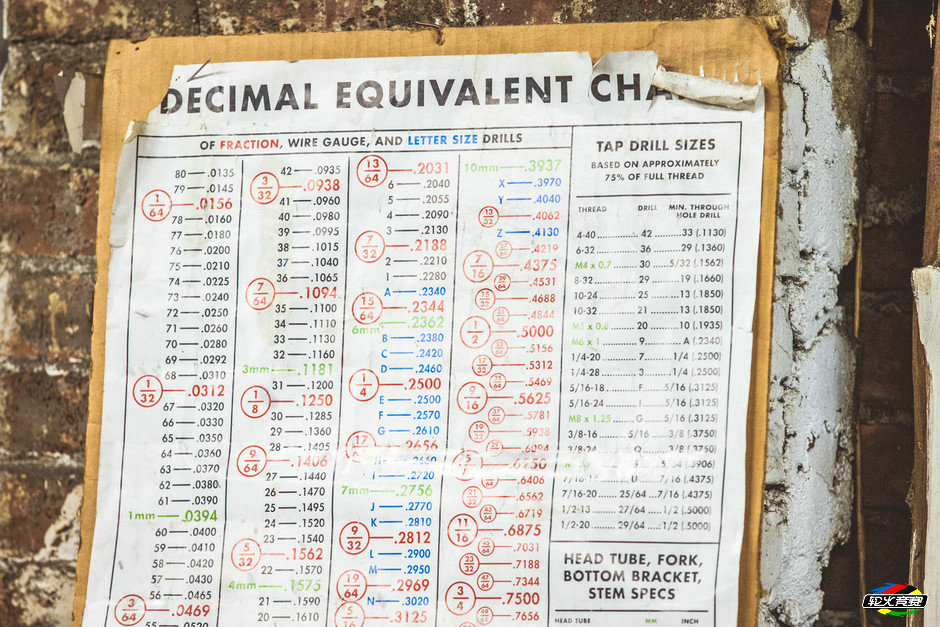 DECIMAL EQUIVALENT CHA
OF FRACTION, WIRE GAUGE, AND LETTER SIZE DRILLS
80 — .0135
79 — .0145
1/64 — .0156
78 — .0160
77 — .0180
76 — .0200
75 — .0210
74 — .0225
73 — .0240
72 — .0250
71 — .0260
70 — .0280
69 — .0292
68 — .0310
1/32 — .0312
67 — .0320
66 — .0330
65 — .0350
64 — .0360
63 — .0370
62 — .0380
61 — .0390
1mm — .0394
60 — .0400
59 — .0410
58 — .0420
57 — .0430
56 — .0465
3/64 — .0469
55 — .0520
42 — .0935
3/32 — .0938
41 — .0960
40 — .0980
39 — .0995
38 — .1015
37 — .1040
36 — .1065
7/64 — .1094
35 — .1100
34 — .1110
33 — .1130
32 — .1160
3mm — .1181
31 — .1200
1/8 — .1250
30 — .1285
29 — .1360
28 — .1405
9/64 — .1406
27 — .1440
26 — .1470
25 — .1495
24 — .1520
23 — .1540
5/32 — .1562
22 — .1570
4mm — .1575
21 — .1590
20 — .1610
13/64 — .2031
6 — .2040
5 — .2055
4 — .2090
3 — .2130
7/32 — .2188
2 — .2210
1 — .2280
A — .2340
15/64 — .2344
6mm — .2362
B — .2380
C — .2420
D — .2460
1/4 — .2500
E — .2500
F — .2570
G — .2610
17/64 — .2656
H — .2660
I — .2720
7mm — .2756
J — .2770
K — .2810
9/32 — .2812
L — .2900
M — .2950
19/64 — .2969
N — .3020
5/16 — .3125
10mm — .3937
X — .3970
Y — .4040
13/32 — .4062
Z — .4130
27/64 — .4219
7/16 — .4375
29/64 — .4531
15/32 — .4688
31/64 — .4844
1/2 — .5000
33/64 — .5156
17/32 — .5312
35/64 — .5469
9/16 — .5625
37/64 — .5781
19/32 — .5938
39/64 — .6094
5/ — .6250
.6406
21/32 — .6562
43/64 — .6719
11/16 — .6875
45/64 — .7031
23/32 — .7188
47/64 — .7344
3/4 — .7500
49/64 — .7656
TAP DRILL SIZES
BASED ON APPROXIMATELY
75% OF FULL THREAD
THREAD DRILL MIN. THROUGH
HOLE DRILL
4-40 42 .33 (.1130)
6-32 36 .29 (.1360)
M4 x 0.7 30 5/32 (.1562)
8-32 29 .19 (.1660)
10-24 25 .13 (.1850)
10-32 21 .13 (.1850)
M5 x 0.8 20 10 (.1935)
M6 x 1 9 A (.2340)
1/4-20 7 1/4 (.2500)
1/4-28 3 1/4 (.2500)
5/16-18 F 5/16 (.3125)
5/16-24 I 5/16 (.3125)
M8 x 1.25 G 5/16 (.3125)
3/8-16 5/16 3/8 (.3750)
3/8-24 Q 3/8 (.3750)
(.3906)
7/16-14 U 7/16 (.4375)
7/16-20 25/64 7/16 (.4375)
1/2-13 27/64 1/2 (.5000)
1/2-20 29/64 1/2 (.5000)
HEAD TUBE, FORK,
BOTTOM BRACKET,
STEM SPECS
HEAD TUBE MM INCH
轮火竞赛